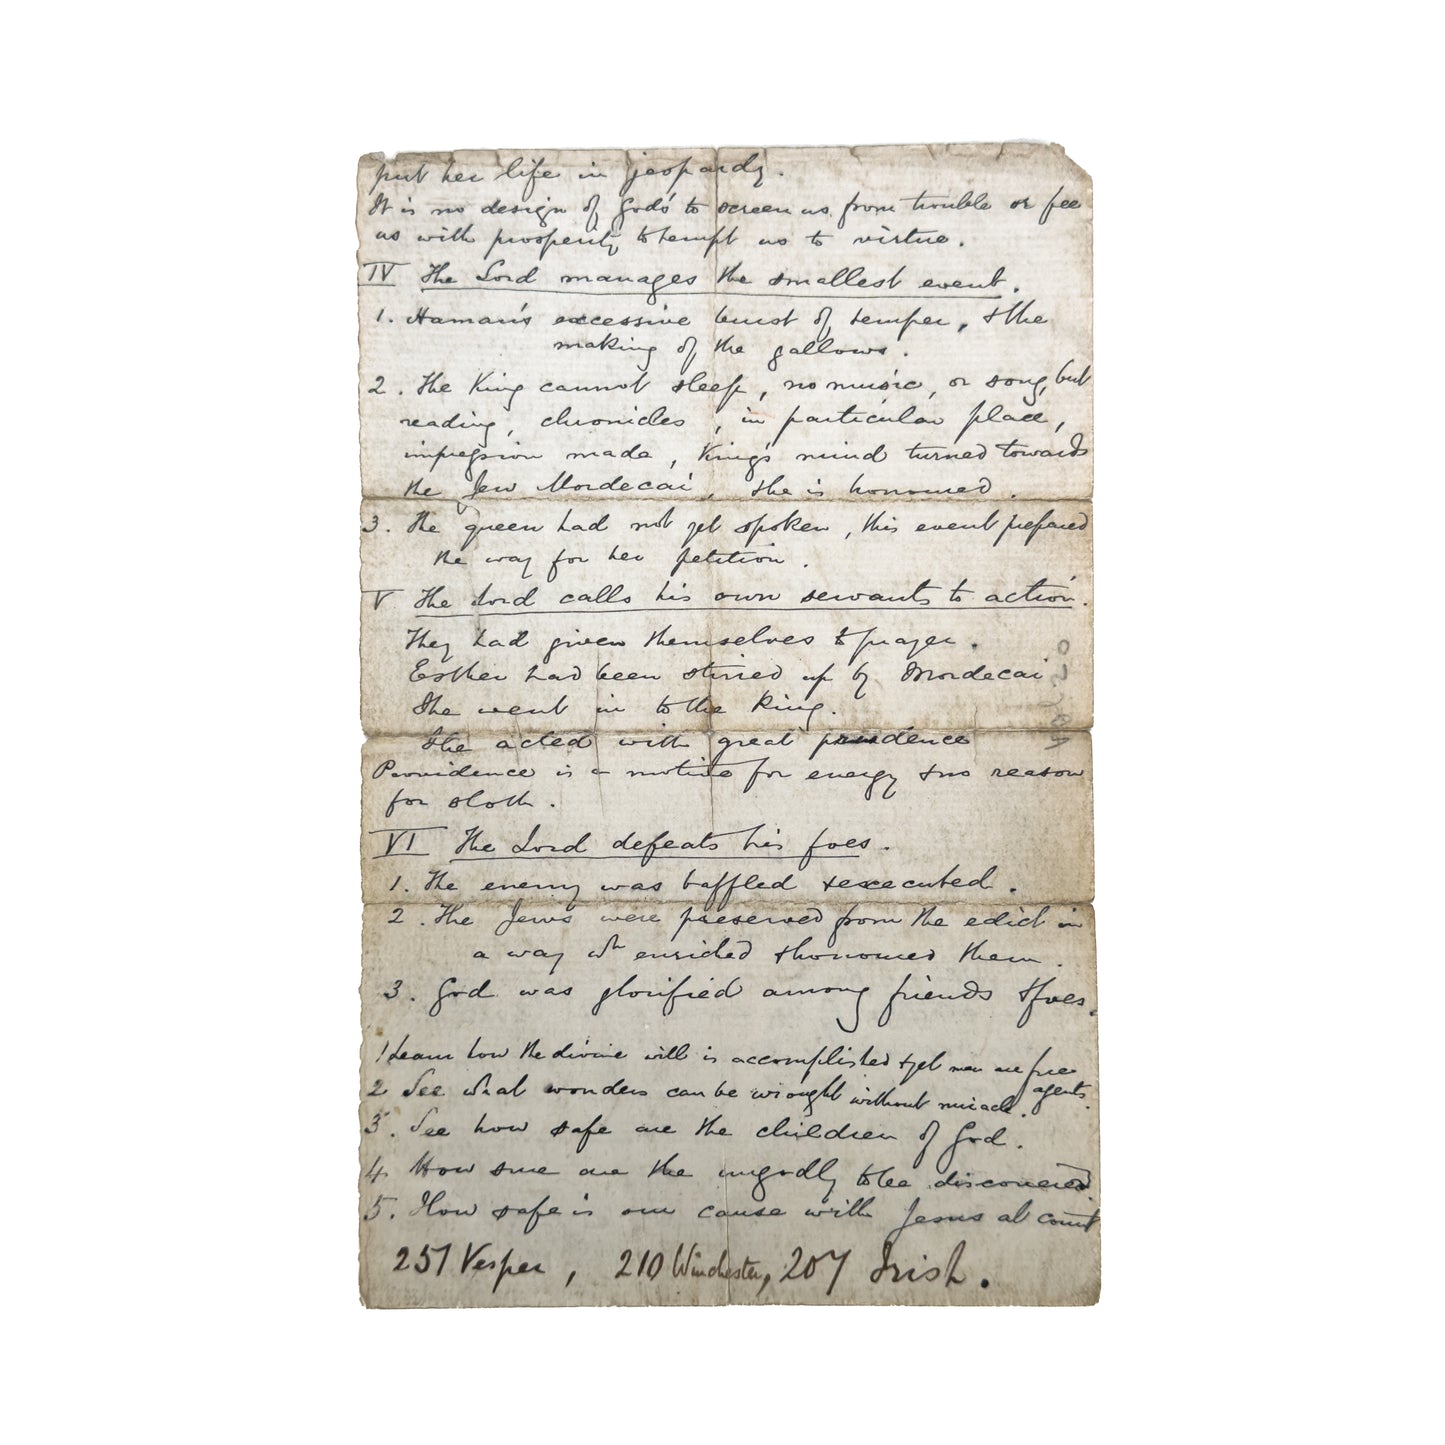 put her life in jeopardy.
It is no design of God's to screen us from trouble or fee
us with prosperity to tempt us to virtue.
IV The Lord manages the smallest event.
1. Haman's excessive burst of temper, & the
making of the gallows.
2. The King cannot sleep, no music, or song, but
reading, chronicles, in particular place,
impression made, King's mind turned towards
the Jew Mordecai, & he is honoured.
3. The queen had not yet spoken, this event prepared
the way for her petition.
V The Lord calls his own servants to action.
They had given themselves to prayer.
Esther had been stirred up by Mordecai
She went in to the King.
She acted with great prudence
Providence is a motive for energy & no reason
for sloth.
VI The Lord defeats his foes.
1. The enemy was baffled & executed.
2. The Jews were preserved from the edict in
a way wh enriched & honoured them.
3. God was glorified among friends & foes.
1 Learn how the divine will is accomplished & yet men are free
agents.
2 See what wonders can be wrought without miracle.
3. See how safe are the children of God.
4 How sure are the ungodly to be discovered.
5. How safe is our cause with Jesus at court
257 Vesper, 210 Winchester, 207 Irish.